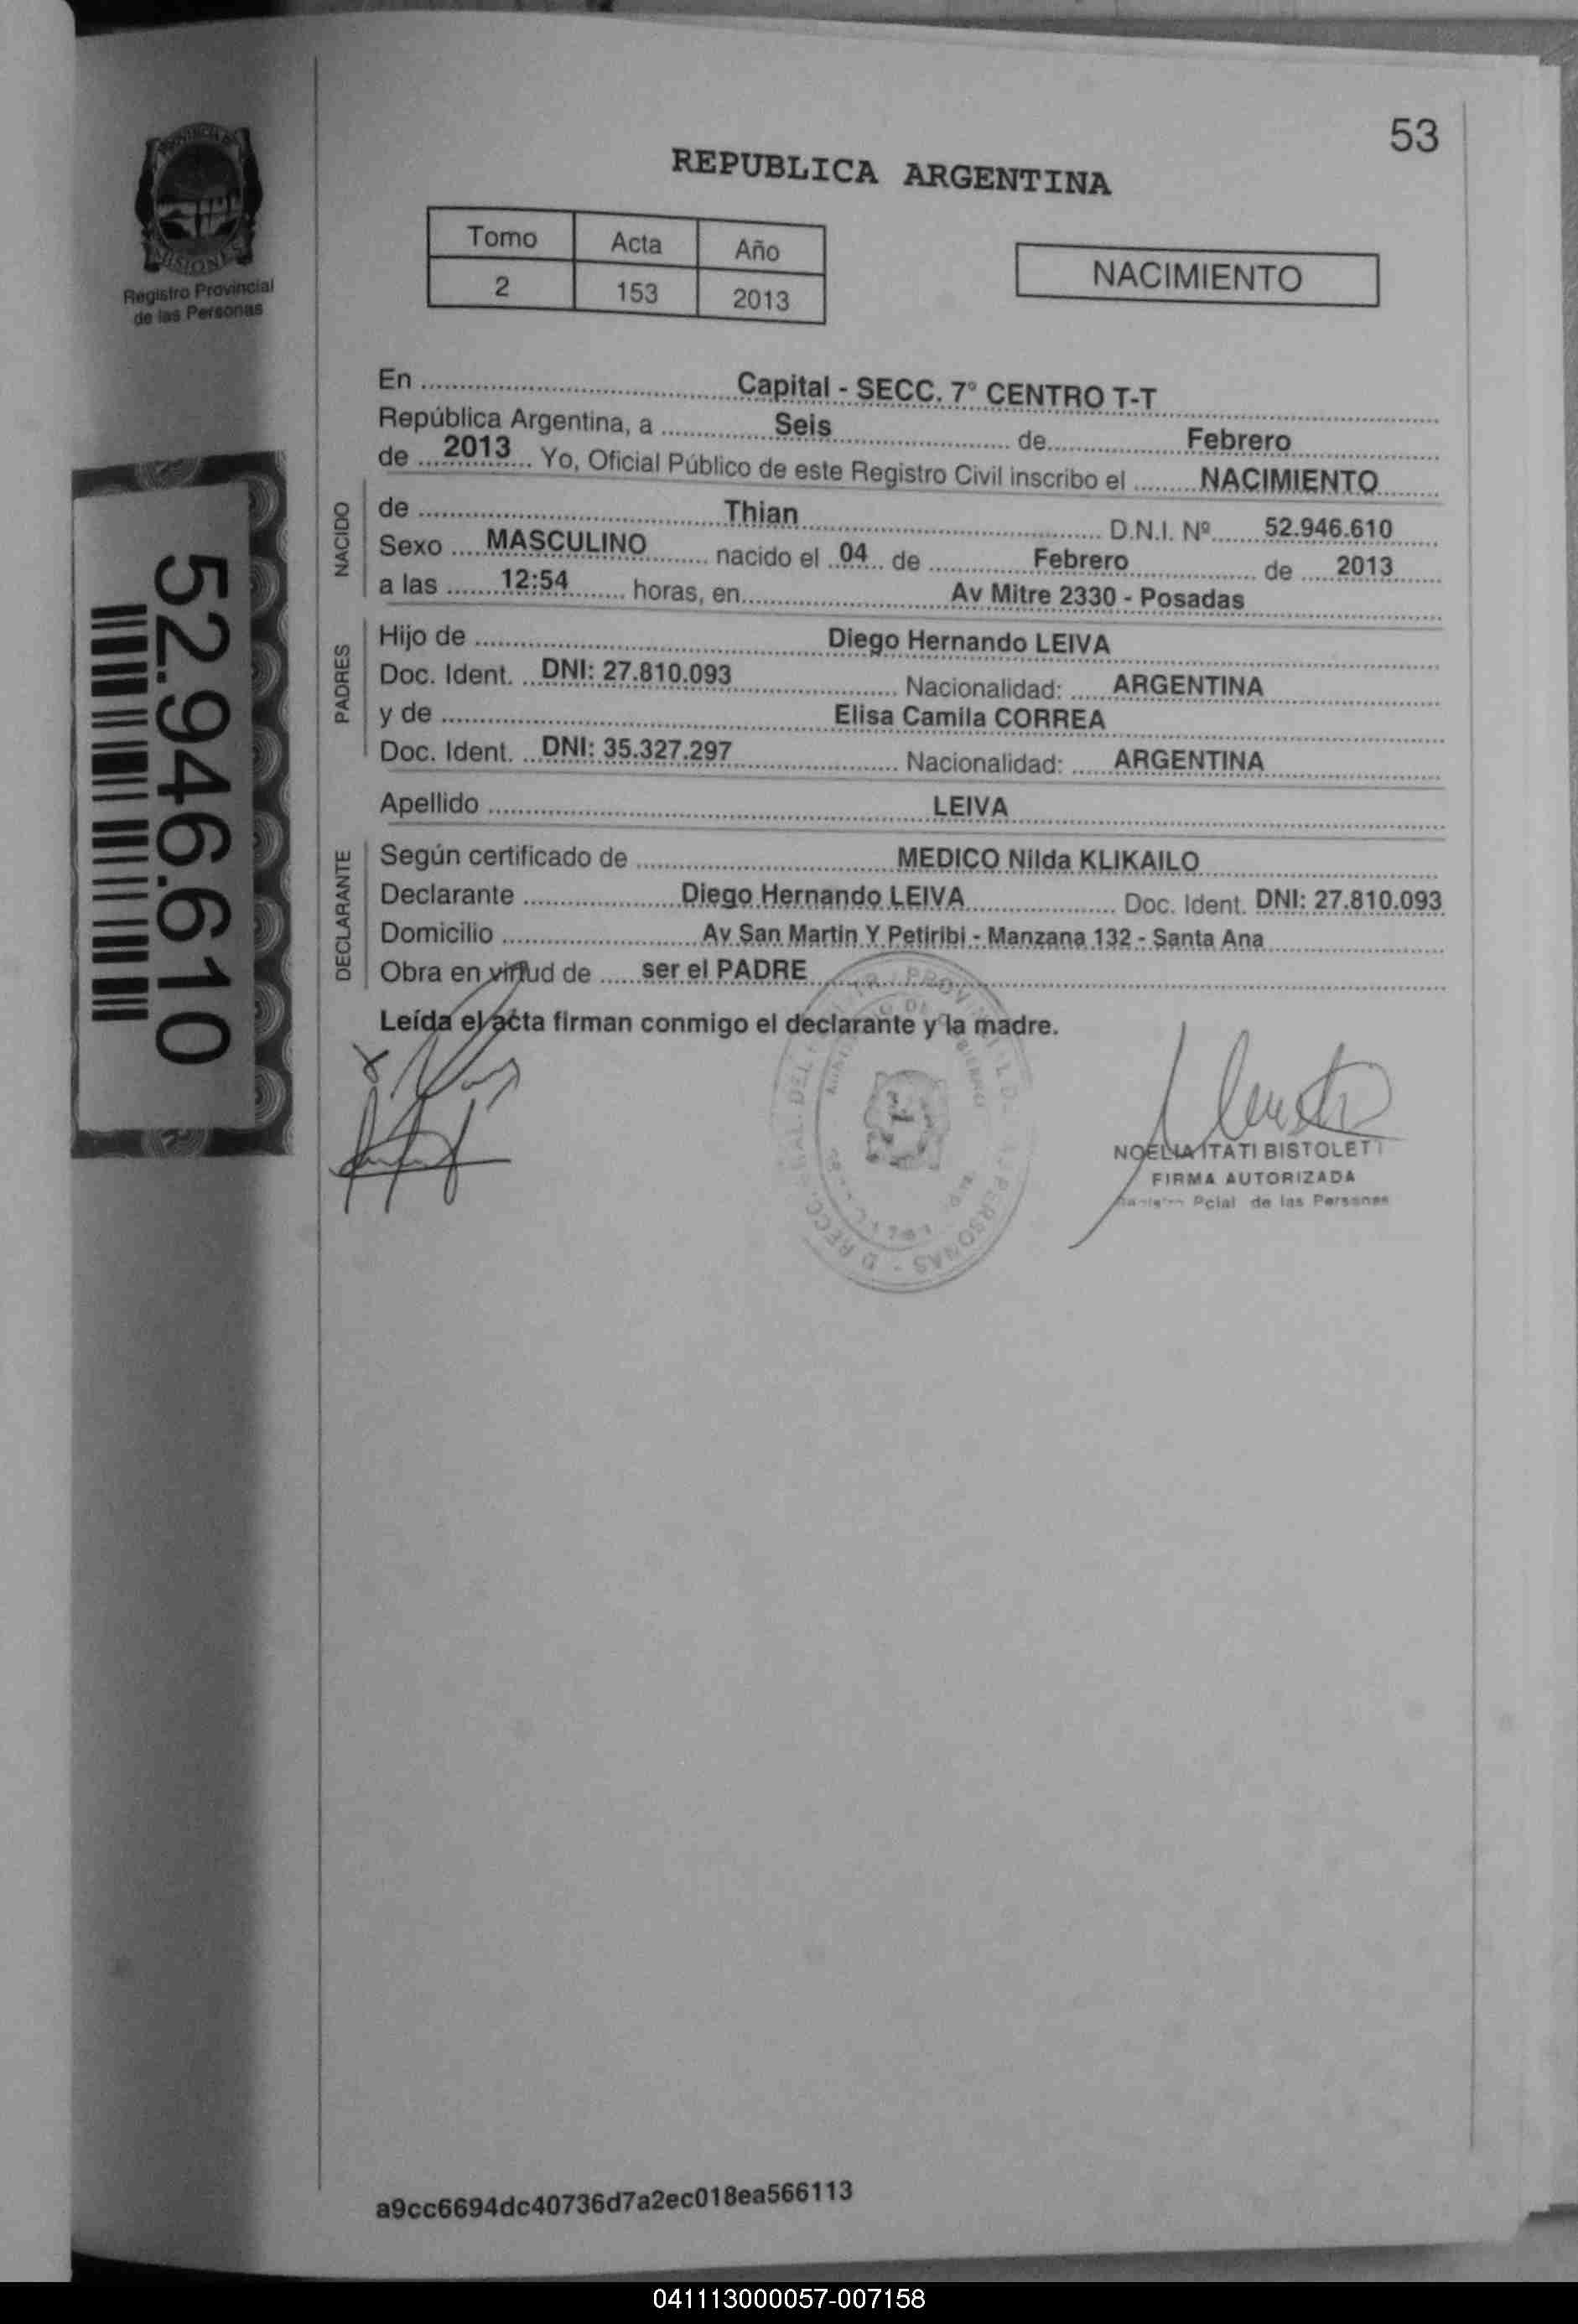 53
REPUBLICA ARGENTINA
PROVINCIA DE
MISIONES
Registro Provincial
de las Personas
Tomo Acta Año
2 153 2013
NACIMIENTO
En Capital - SECC. 7º CENTRO T-T
República Argentina, a Seis de Febrero
de 2013 Yo, Oficial Público de este Registro Civil inscribo el NACIMIENTO
NACIDO
de Thian D.N.I. Nº 52.946.610
Sexo MASCULINO nacido el 04 de Febrero de 2013
a las 12:54 horas, en Av Mitre 2330 - Posadas
PADRES
Hijo de Diego Hernando LEIVA
Doc. Ident. DNI: 27.810.093 Nacionalidad: ARGENTINA
y de Elisa Camila CORREA
Doc. Ident. DNI: 35.327.297 Nacionalidad: ARGENTINA
Apellido LEIVA
DECLARANTE
Según certificado de MEDICO Nilda KLIKAILO
Declarante Diego Hernando LEIVA Doc. Ident. DNI: 27.810.093
Domicilio Av San Martin Y Petiribi - Manzana 132 - Santa Ana
Obra en virtud de ser el PADRE
Leída el acta firman conmigo el declarante y la madre.
52.946.610
NOELIA ITATI BISTOLETTI
FIRMA AUTORIZADA
Pcial de las Personas
a9cc6694dc40736d7a2ec018ea566113
041113000057-007158